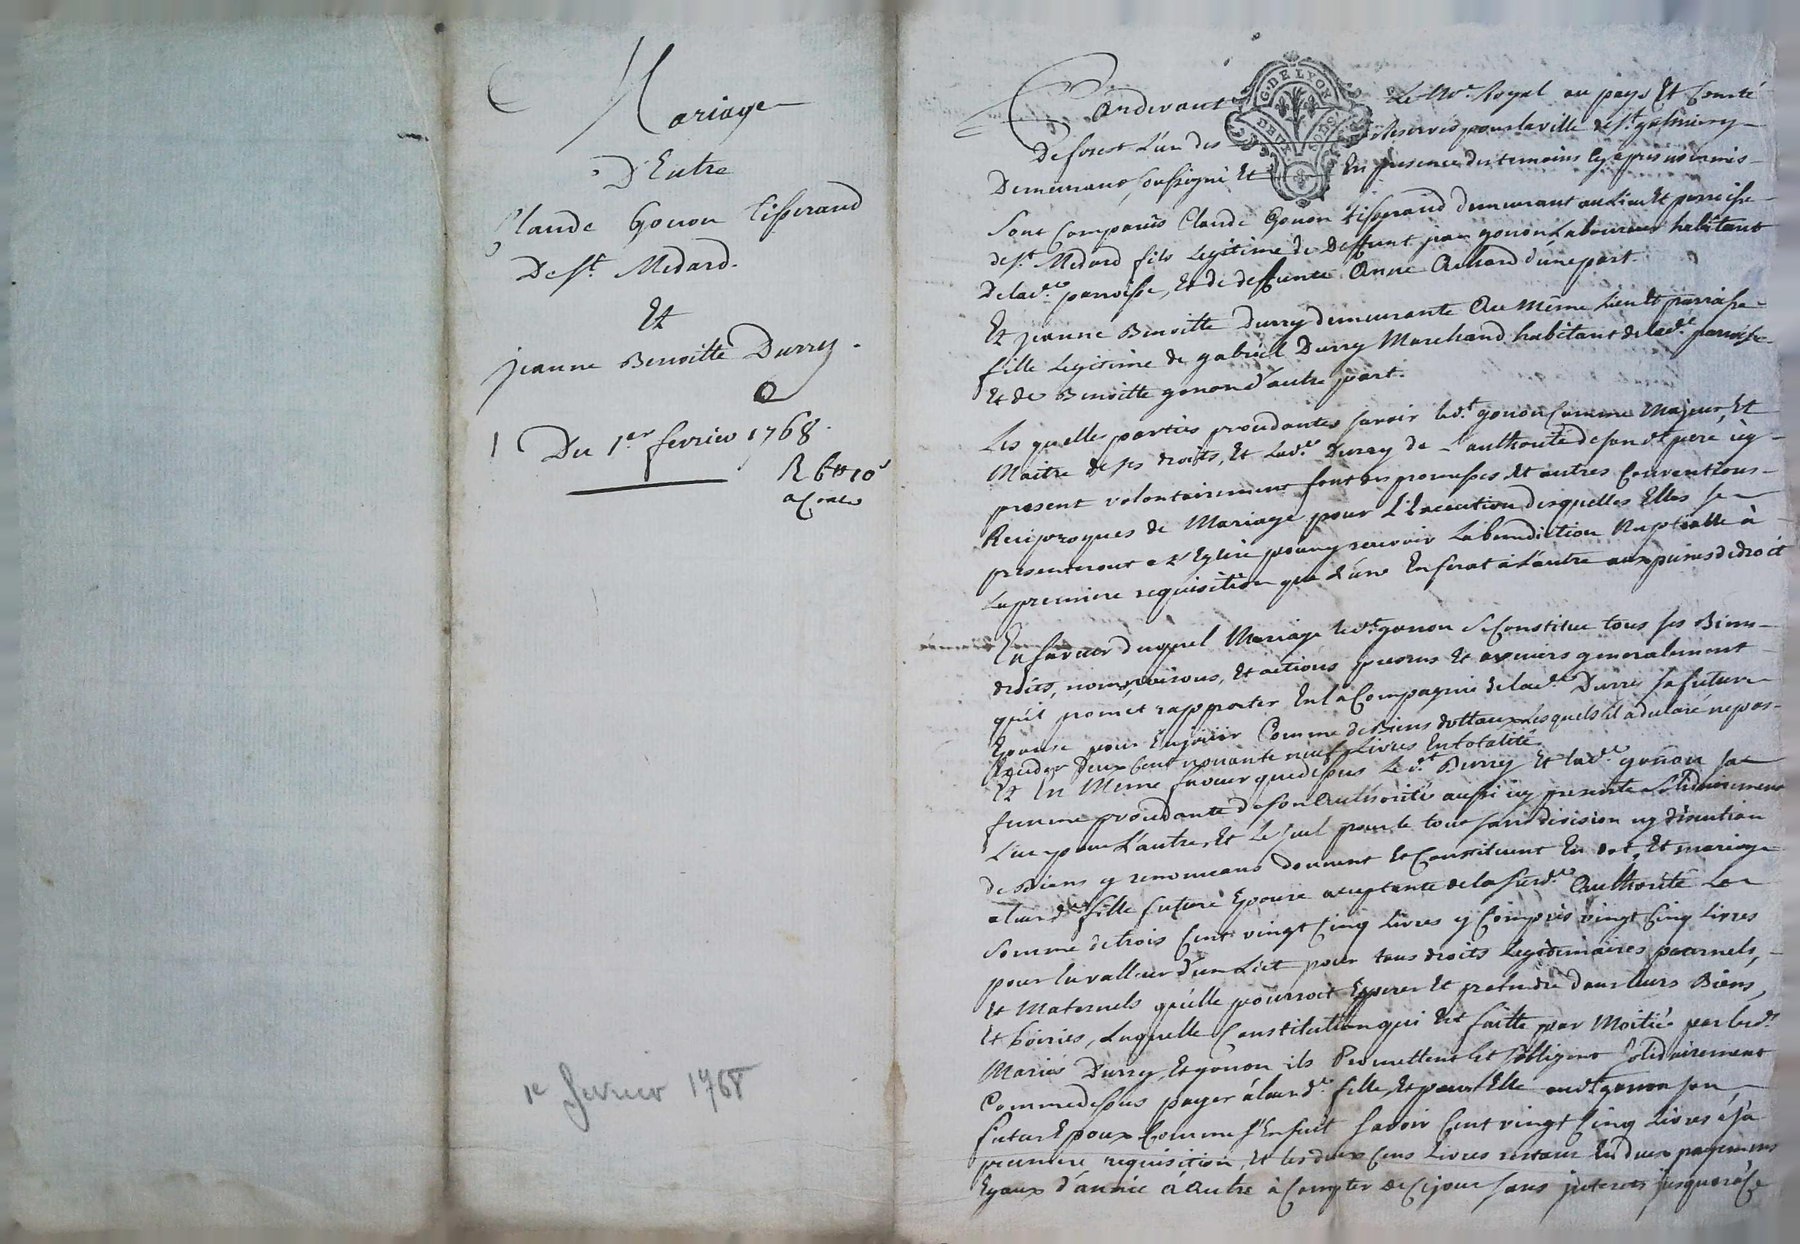 Mariage
D'Entre
Claude Gonon tisserand
De st. Medard.
Et
jeanne Benoitte Durry.
Du 1er fevrier 1768.
R 6tt 10s
1e fevrier 1768
G. DE LYON
DEUX SOLS
Pardevant Le Nre. Royal au pays Et Comté
De forest L'un des reservés pour la ville de st. galmier y
Demeurant, soussigné Et En presence des temoins cy apres nommés
Sont comparus Claude Gonon tisserand demeurant au Lieu Et parroisse
de st. Medard fils Legitime de Deffunt jean gonon Laboureur habitant
De lad.e parroisse, Et de deffunte Anne Achard d'une part
Et jeanne Benoitte Durry demeurante Au même Lieu Et parroisse
fille Legitime de gabriel Durry Marchand habitant de lad.e parroisse
Et de Benoitte gonon d'autre part.
Les quelles parties procedantes savoir led.t gonon comme Majeur Et
Maitre de ses droits, Et Lad.e Durry de L'authorité de son d.t pere icy
present volontairement font les promesses Et autres Conventions
Reciproques de Mariage pour L'Execution desquelles Elles se
presenteront a L'Eglise pour y recevoir La benediction Nuptialle à
La premiere requisition que L'une En ferat à L'autre aux peines de droit
En faveur duquel Mariage led.t gonon se Constitue tous ses Biens
droits, noms, raisons, Et actions presens Et avenirs generalement
qu'il promet rapporter En la Compagnie de lad.e Durre sa future
Epouse pour En jouir Comme de Biens dottaux Lesquels il a declaré ne pas
Exceder Deux Cent nonante neuf Livres En totalité
Et En Meme faveur que dessus Le d.t Durry Et lad.e gonon sa
femme procedante de son Authorité aussi icy presente solidairement
L'un pour L'autre, Et Le seul pour le tout sans division ny discution
de Biens y renonceans donnent Et Constituent En dot, Et mariage
a leur d.e fille future Epouse acceptante de la susd.e Authorité La
somme de trois Cent vingt Cinq Livres y Compris vingt Cinq Livres
pour la valleur d'un Lict pour tous droits Legitimaires paternels,
Et Maternels qu'elle pourroit Esperer Et pretendre dans leurs Biens,
Et hoiries, Laquelle Constitution qui Est faitte par Moitié par lesd.
Mariés Durry, Et gonon ils Promettent Et s'obligent solidairement
Comme dessus payer à leur d.e fille, Et pour Elle aud.t gonon son
futur Epoux Comme s'Ensuit savoir Cent vingt Cinq Livres à sa
premiere requisition, Et les deux Cens Livres restans En deux payemens
Egaux d'année à autre à Compter de Ce jour sans interets jusqu'alors